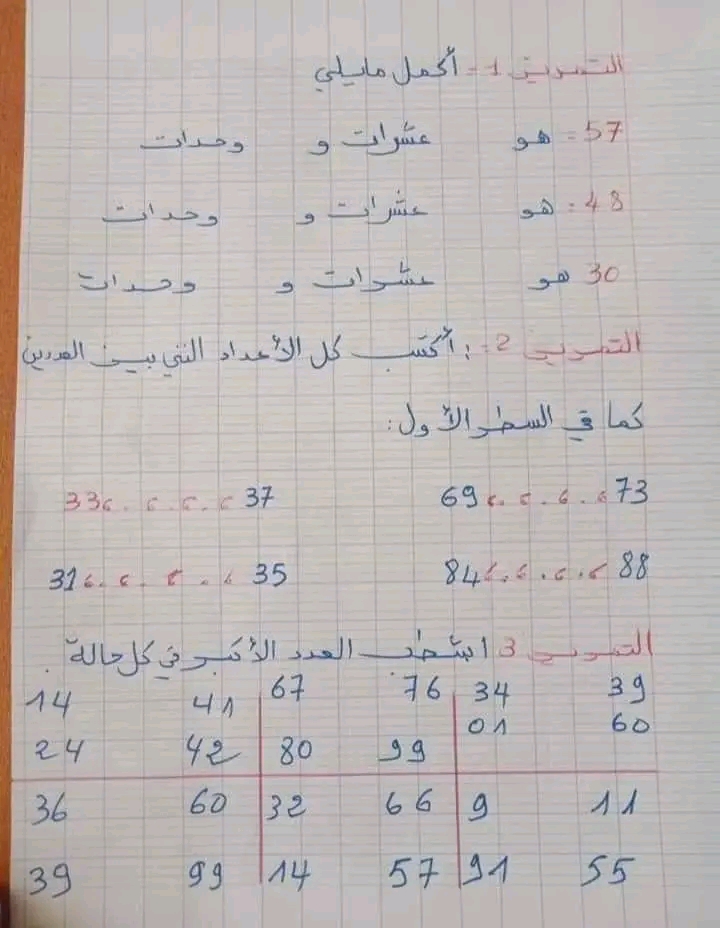 التمرين 1- أكمل مايلي
57 = هو عشرات و وحدات
48 : هو عشرات و وحدات
30 هو عشرات و وحدات
التمرين 2 =: أكتب كل الأعداد التي بين العددين
كما في السطر الأول:
33 ، . ، . ، . ، 37 69 ، . ، . ، . ، 73
31 ، . ، . ، . ، 35 84 ، . ، . ، . ، 88
التمرين 3 اشطب العدد الأكبر في كل حالة .
14 41 67 76 34 39
24 42 80 99 01 60
36 60 32 66 9 11
39 99 14 57 91 55